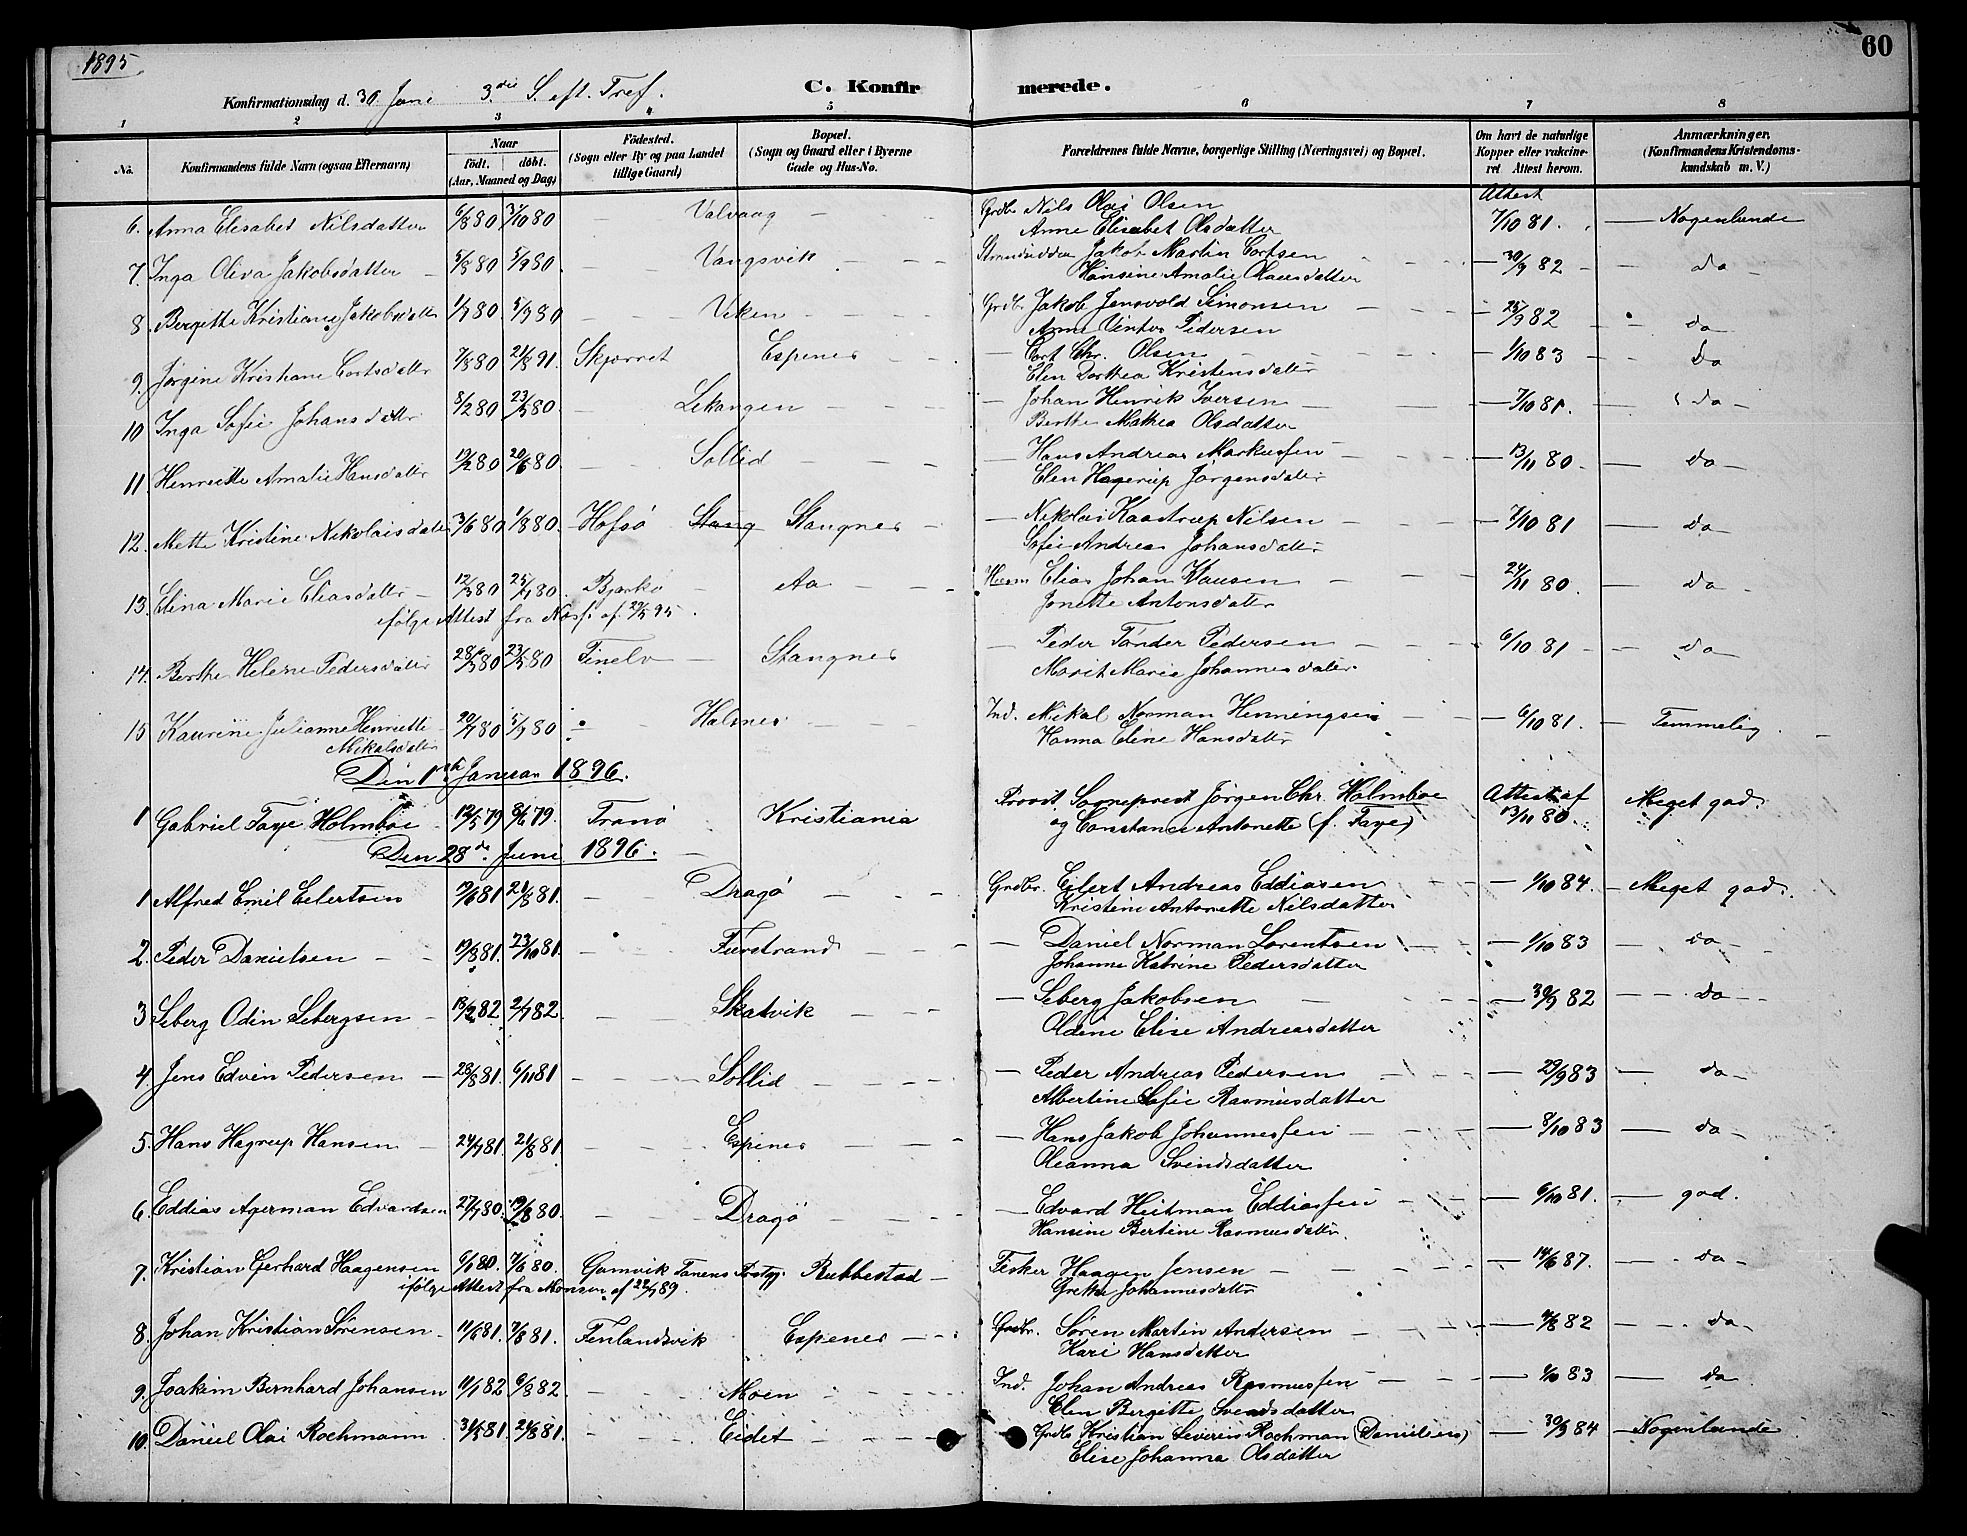 1895
60
Konfirmationsdag d. 30 Juni 3die S. eft. Tref.
C. Konfirmerede.
1 2 3 4 5 6 7 8
No. Konfirmandens fulde Navn (ogsaa Efternavn) Naar født. døbt. (Aar, Maaned og Dag) Födested. (Sogn eller By og paa Landet tillige Gaard) Bopæl. (Sogn og Gaard eller i Byerne Gade og Hus-No. Forældrenes fulde Navne, borgerlige Stilling (Næringsvei) og Bopæl. Om havt de naturlige Kopper eller vakcineret Attest herom. Anmærkninger. (Konfirmandens Kristendomskundskab m. V.)
6. Anna Elisabet Nilsdatter 6/8 80 3/10 80 Valvaag Grdbr Nils Olai Olsen Attest 7/10 81. Nogenlunde
Anne Elisabet Olsdatter
7. Inga Oliva Jakobsdatter 5/8 80 5/9 80 Vangsvik Jakob Martin Cortsen 30/9 82 do
Hansine Amalie Olausdatter
8. Bergette Kristiane Jakobsdatter 1/7 80 5/9 80 Viken Grdbr. Jakob Jensvold Simonsen 25/9 82 do
Anne Pedersen
9. Jørgine Kristiane Cortsdatter 7/8 80 21/8 91 Skjærret Espenes Cort Chr. Olsen 1/10 83 Do
Elen Dorthea Kristensdatter
10 Inga Sofie Johansdatter 8/2 80 23/5 80 Lekangen Johan Henrik Iversen 7/10 81. do
Berthe Mathea Olsdatter
11. Henriette Amalie Hansdatter 19/2 80 20/6 80 Sollid Hans Andreas Markussen 13/11 80 do
Elen Hagerup Jørgensdatter
12. Mette Kristine Nikolaisdatter 3/6 80 1/8 80. Hofsø Stang Stangnes Nikolai Kaastrup Nilsen 7/10 81 do
Sofie Andrea Johansdatter
13. Elina Marie Eliasdatter 12/3 80 25/4 80. Bjarkø Aa Husm Elias Johan Klausen 24/11 80. do
ifølge Attest fra af 29/5 95. Jonette Antonsdatter
14. Berthe Helene Pedersdatter 28/3 80 23/5 80 Finelv Stangnes Peder Tønder Pedersen 6/10 81 do
Marit Marie Johannesdatter
15 Kaurine Julianne Henriette 20/7 80 5/9 80 Halsnes Ind. Mikal Norman Henningsen 6/10 81. Temmelig
Mikalsdatter Hanna Eline Hansdatter
Den 1ste Januar 1896.
1 Gabriel Faye Holmboe 12/5 79 8/6 79. Tranø Kristiania Provst, Sogneprest Jørgen Chr. Holmboe Attest af 13/11 80. Meget god.
og Constance Antonette (f. Faye)
Den 28de Juni 1896.
1 Alfred Emil Eilertsen 19/6 81 21/8 81. Dragø Grdbr. Eilert Andreas Eddiasen 1/10 84. Meget god.
Kristine Antonette Nilsdatter
2. Peder Danielsen 19/8 81. 23/10 81. Furstrand Daniel Norman Lorentsen 1/10 83 do
Johanne Katrine Pedersdatter
3 Seberg Odin Sebergsen 13/2 82 2/7 82 Skatvik Seberg Jakobsen 30/9 82 do
Oldine Elise Andreasdatter
4. Jens Edvin Pedersen 28/8 81. 6/11 81 Sollid Peder Andreas Pedersen 29/9 83 do
Albertine Sofie Rasmusdatter
5. Hans Hagrup Hansen 24/7 81. 21/8 81. Espenes Hans Jakob Johannessen 8/10 83 do
Oleanna Svendsdatter
6. Eddias Agerman Edvardsen 27/7 80. 19/8 80. Dragø Edvard Hutman Eddiassen 6/10 81. god.
Hansine Bertine Rasmusdatter.
7. Kristian Gerhard Haagensen 6/1 80. 7/6 80. Gamvik Tanens Prstgj. Rubbestad Fisker Haagen Jensen 14/6 87. do
ifølge Attest fra af 22/7 89. Grethe Johannesdatter
8. Johan Kristian Sørensen 11/6 81. 7/8 81. Finlandsvik Espenes Grdbr. Søren Martin Andersen 82 do
Kari Hansdatter
9. Joakim Bernhard Johansen 11/1 82 6/8 82 Moen Ind. Johan Andreas Rasmussen 83 do
Elen Bergitte Svendsdatter
10. Daniel Olai Rochmann 31/5 81. 21/8 81. Eidet Grdbr Kristian Severin Rochman (Danielsen) 30/9 84 Nogenlunde
Elise Johanna Olsdatter